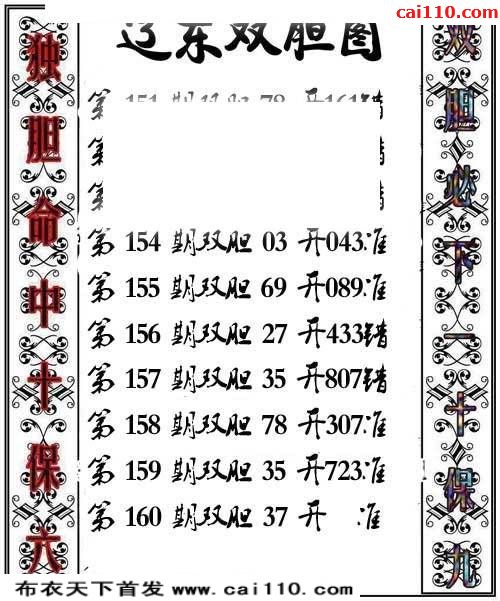 cai110.com
辽东双胆图
独胆命中十保六
双胆必下一十保九
第 151 期双胆 78 开161错
第
第
第 154 期双胆 03 开043准
第 155 期双胆 69 开089准
第 156 期双胆 27 开433错
第 157 期双胆 35 开807错
第 158 期双胆 78 开307准
第 159 期双胆 35 开723准
第 160 期双胆 37 开 准
布衣天下首发 www.cai110.com